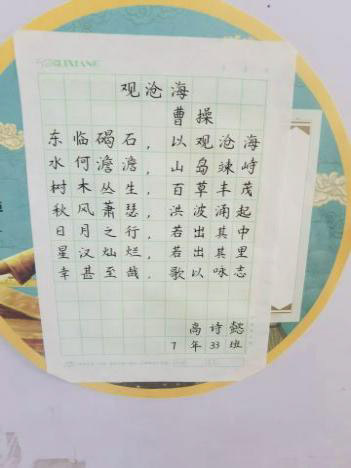 观沧海
曹操
东临碣石，以观沧海
水何澹澹，山岛竦峙
树木丛生，百草丰茂
秋风萧瑟，洪波涌起
日月之行，若出其中
星汉灿烂，若出其里
幸甚至哉，歌以咏志
高诗懿
7年33班